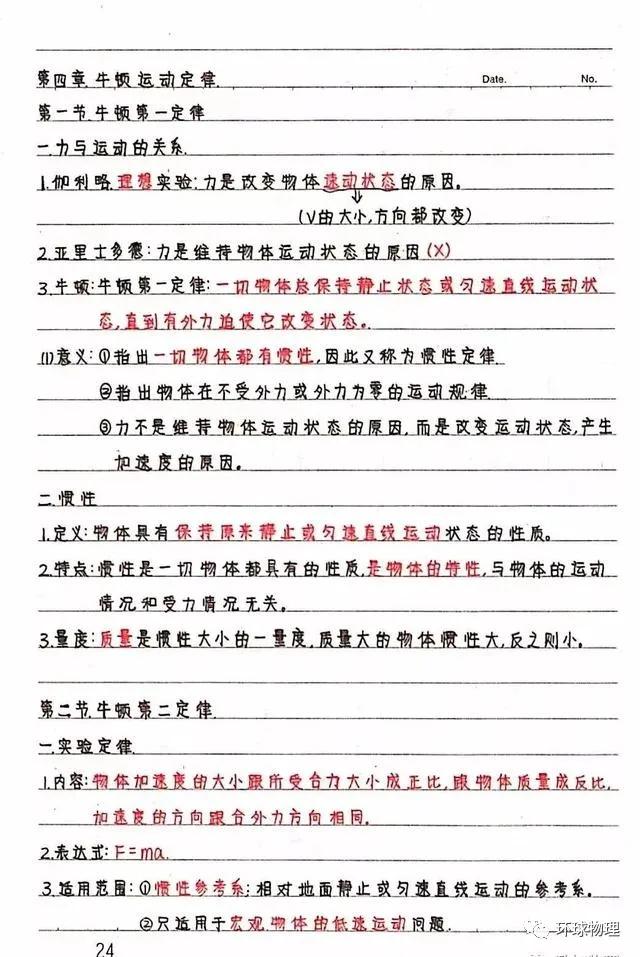 第四章 牛顿运动定律
Date. No.
第一节 牛顿第一定律
一.力与运动的关系.
1.伽利略理想实验:力是改变物体速动状态的原因。
(V的大小,方向都改变)
2.亚里士多德:力是维持物体运动状态的原因(X)
3.牛顿:牛顿第一定律:一切物体总保持静止状态或匀速直线运动状
态,直到有外力迫使它改变状态。
(1)意义:①指出一切物体都有惯性,因此又称为惯性定律
②指出物体在不受外力或外力为零的运动规律
③力不是维持物体运动状态的原因,而是改变运动状态,产生
加速度的原因。
二.惯性
1.定义:物体具有保持原来静止或匀速直线运动状态的性质。
2.特点:惯性是一切物体都具有的性质,是物体的特性,与物体的运动
情况和受力情况无关。
3.量度:质量是惯性大小的一量度,质量大的物体惯性大,反之则小。
第二节.牛顿第二定律.
一.实验定律.
1.内容:物体加速度的大小跟所受合力大小成正比,跟物体质量成反比,
加速度的方向跟合外力方向相同。
2.表达式:F=ma.
3.适用范围:①惯性参考系:相对地面静止或匀速直线运动的参考系。
②只适用于宏观物体的低速运动问题.
环球物理
24